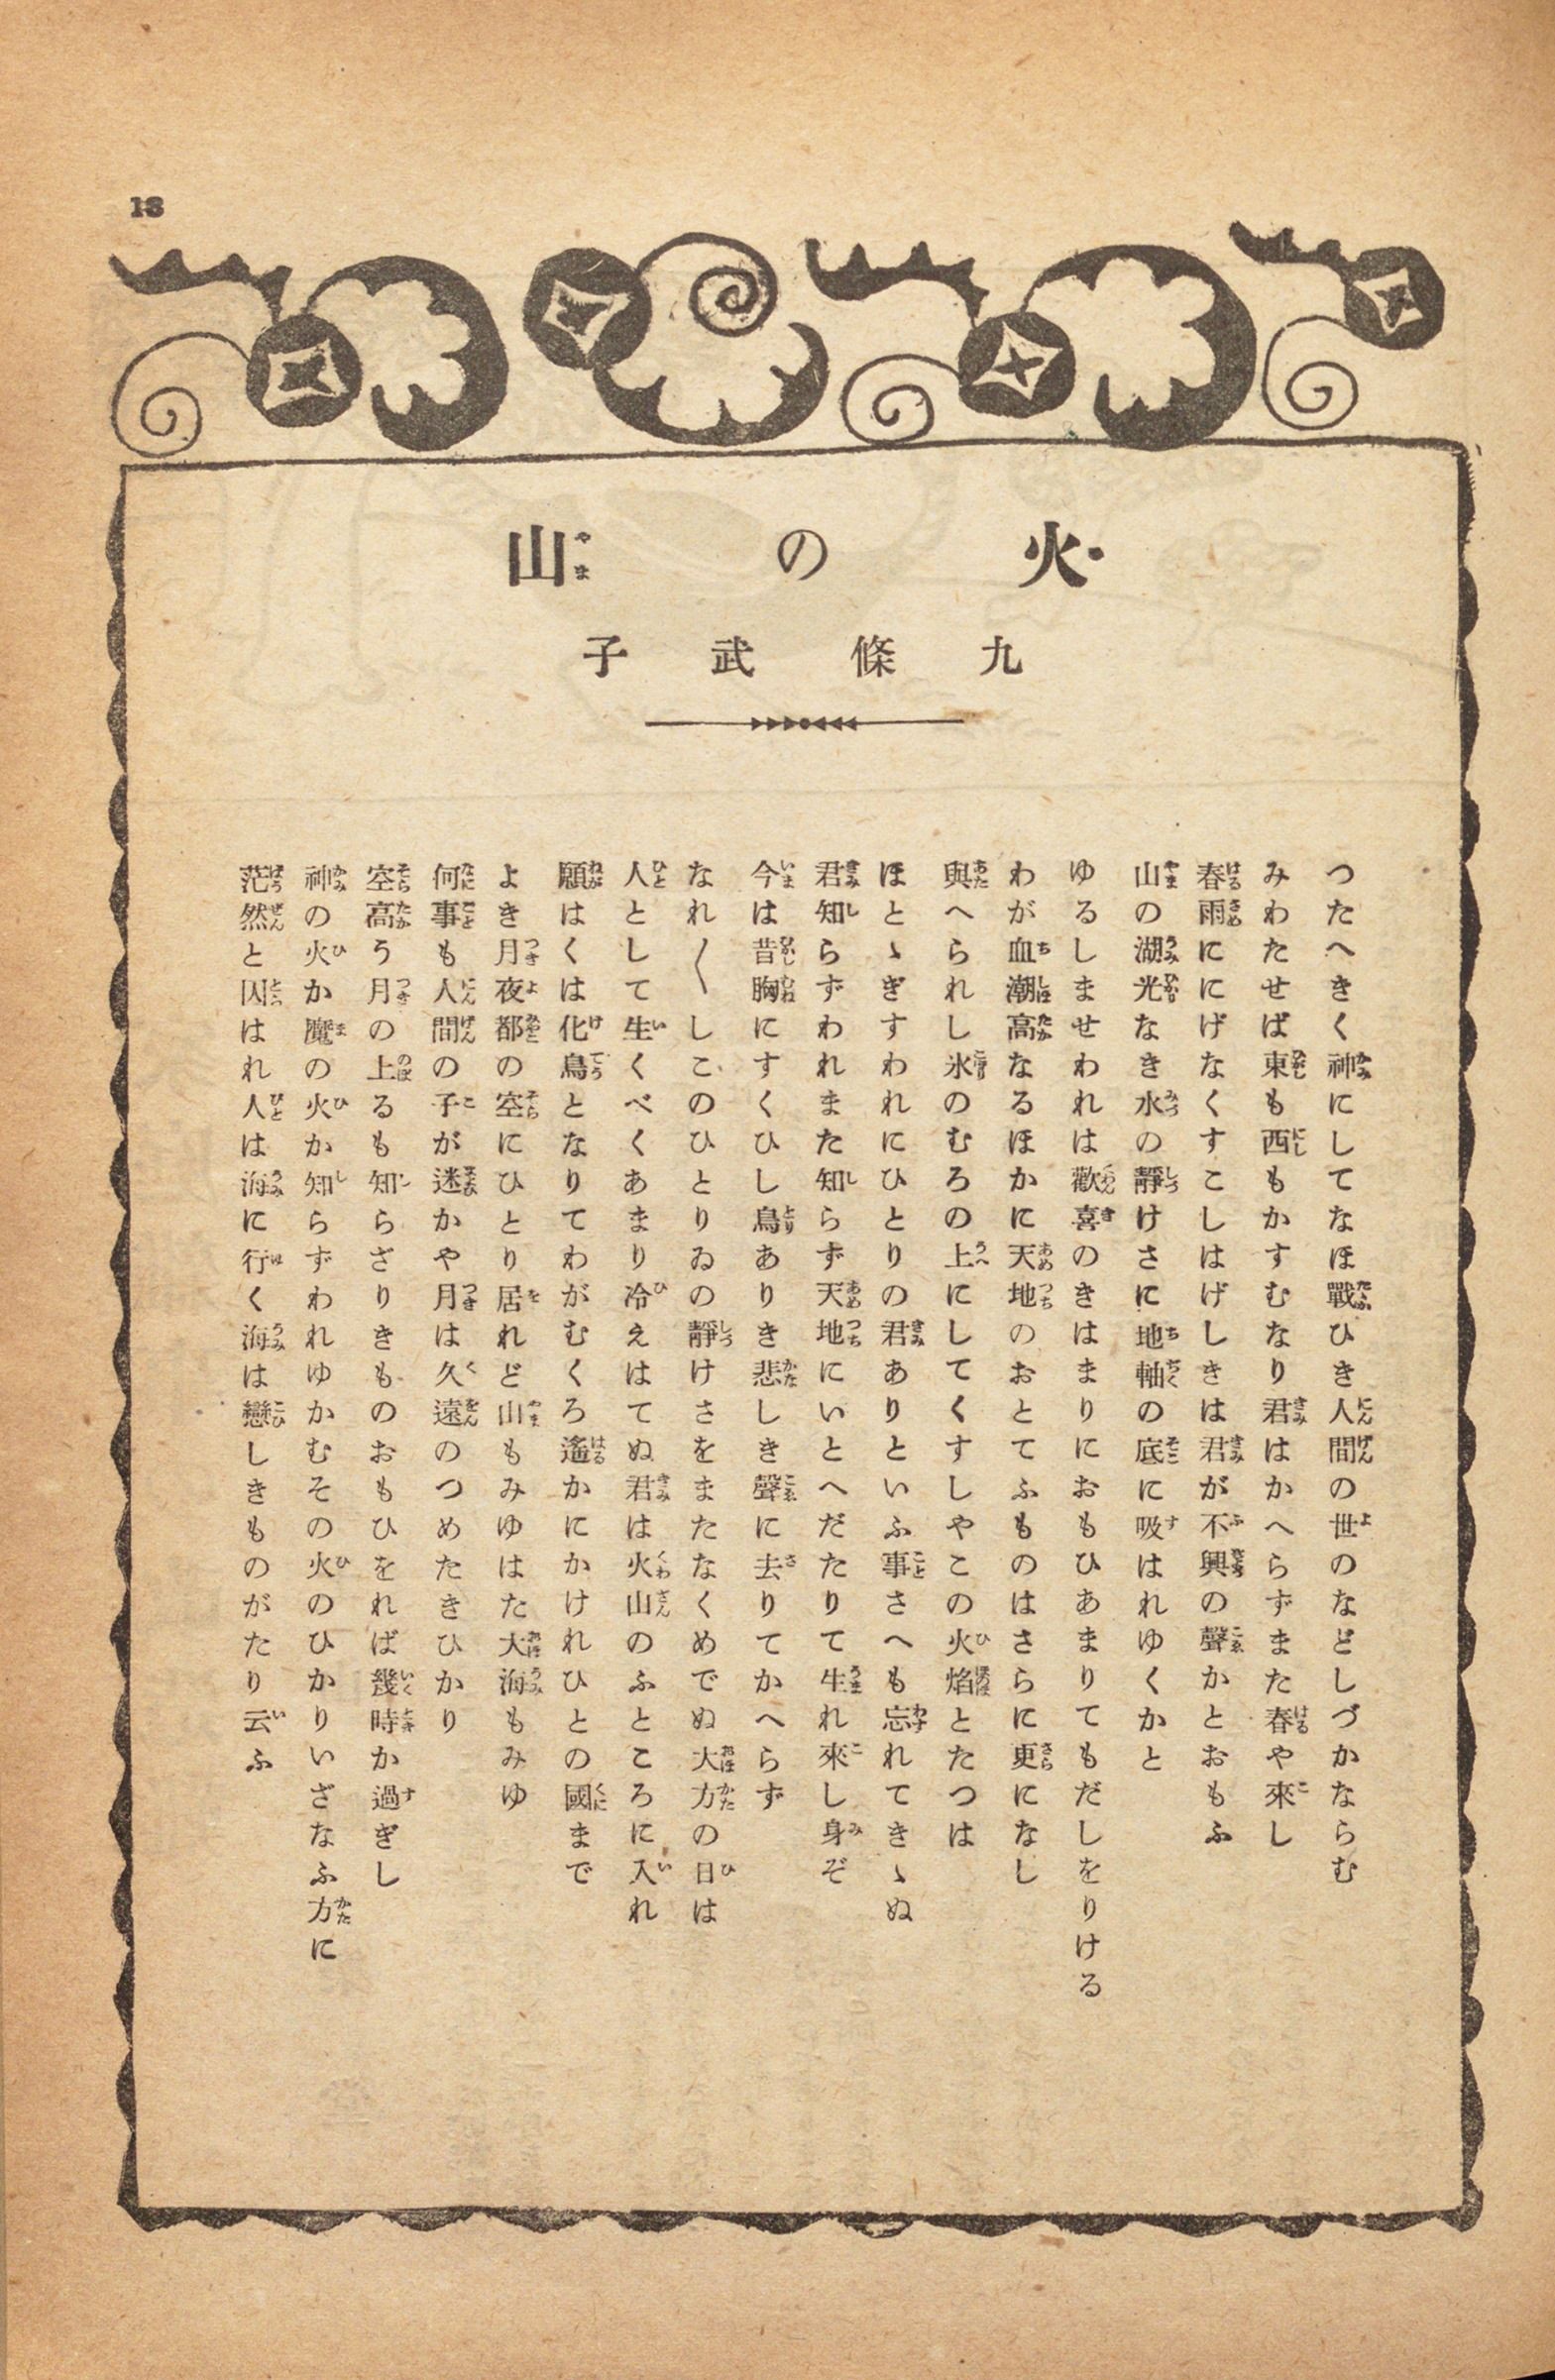 18
火の山
九條武子
つたへきく神にしてなほ戰ひき人間の世のなどしづかならむ
みわたせば東も西もかすむなり君はかへらずまた春や來し
春雨ににげなくすこしはげしきは君が不興の聲かとおもふ
山の湖光なき水の靜けさに地軸の底に吸はれゆくかと
ゆるしませわれは歡喜のきはまりにおもひあまりてもだしをりける
わが血潮高なるほかに天地のおとてふものはさらに更になし
與へられし氷のむろの上にしてくすしやこの火焰とたつは
ほとゝぎすわれにひとりの君ありといふ事さへも忘れてきゝぬ
君知らずわれまた知らず天地にいとへだたりて生れ來し身ぞ
今は昔胸にすくひし鳥ありき悲しき聲に去りてかへらず
なれ〱しこのひとりゐの靜けさをまたなくめでぬ大方の日は
人として生くべくあまり冷えはてぬ君は火山のふところに入れ
願はくは化鳥となりてわがむくろ遙かにかけれひとの國まで
よき月夜都の空にひとり居れど山もみゆはた大海もみゆ
何事も人間の子が迷かや月は久遠のつめたきひかり
空高う月の上るも知らざりきものおもひをれば幾時か過ぎし
神の火か魔の火か知らずわれゆかむその火のひかりいざなふ方に
茫然と囚はれ人は海に行く海は戀しきものがたり云ふ